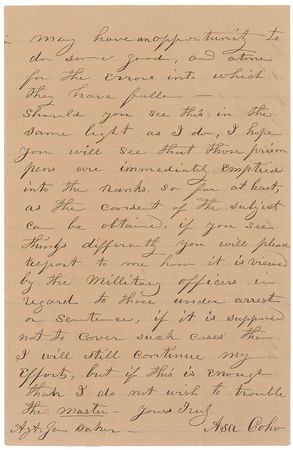 may have an opportunity to
do some good, and atone
for the errors into which
they have fallen —
Should you see this in the
same light as I do, I hope
you will see that those prison
pens are immediately emptied
into the ranks, so far at least,
as the consent of the subject
can be obtained, if you see
things differently you will please
report to me how it is viewed
by the Millitary officers in
regard to those under arrest
or Sentence, if it is supposed
not to cover such cases then
I will still continue my
efforts, but if this is enough
than I do not wish to trouble
the master — Yours Truly
Agt Gen Baker — Asa